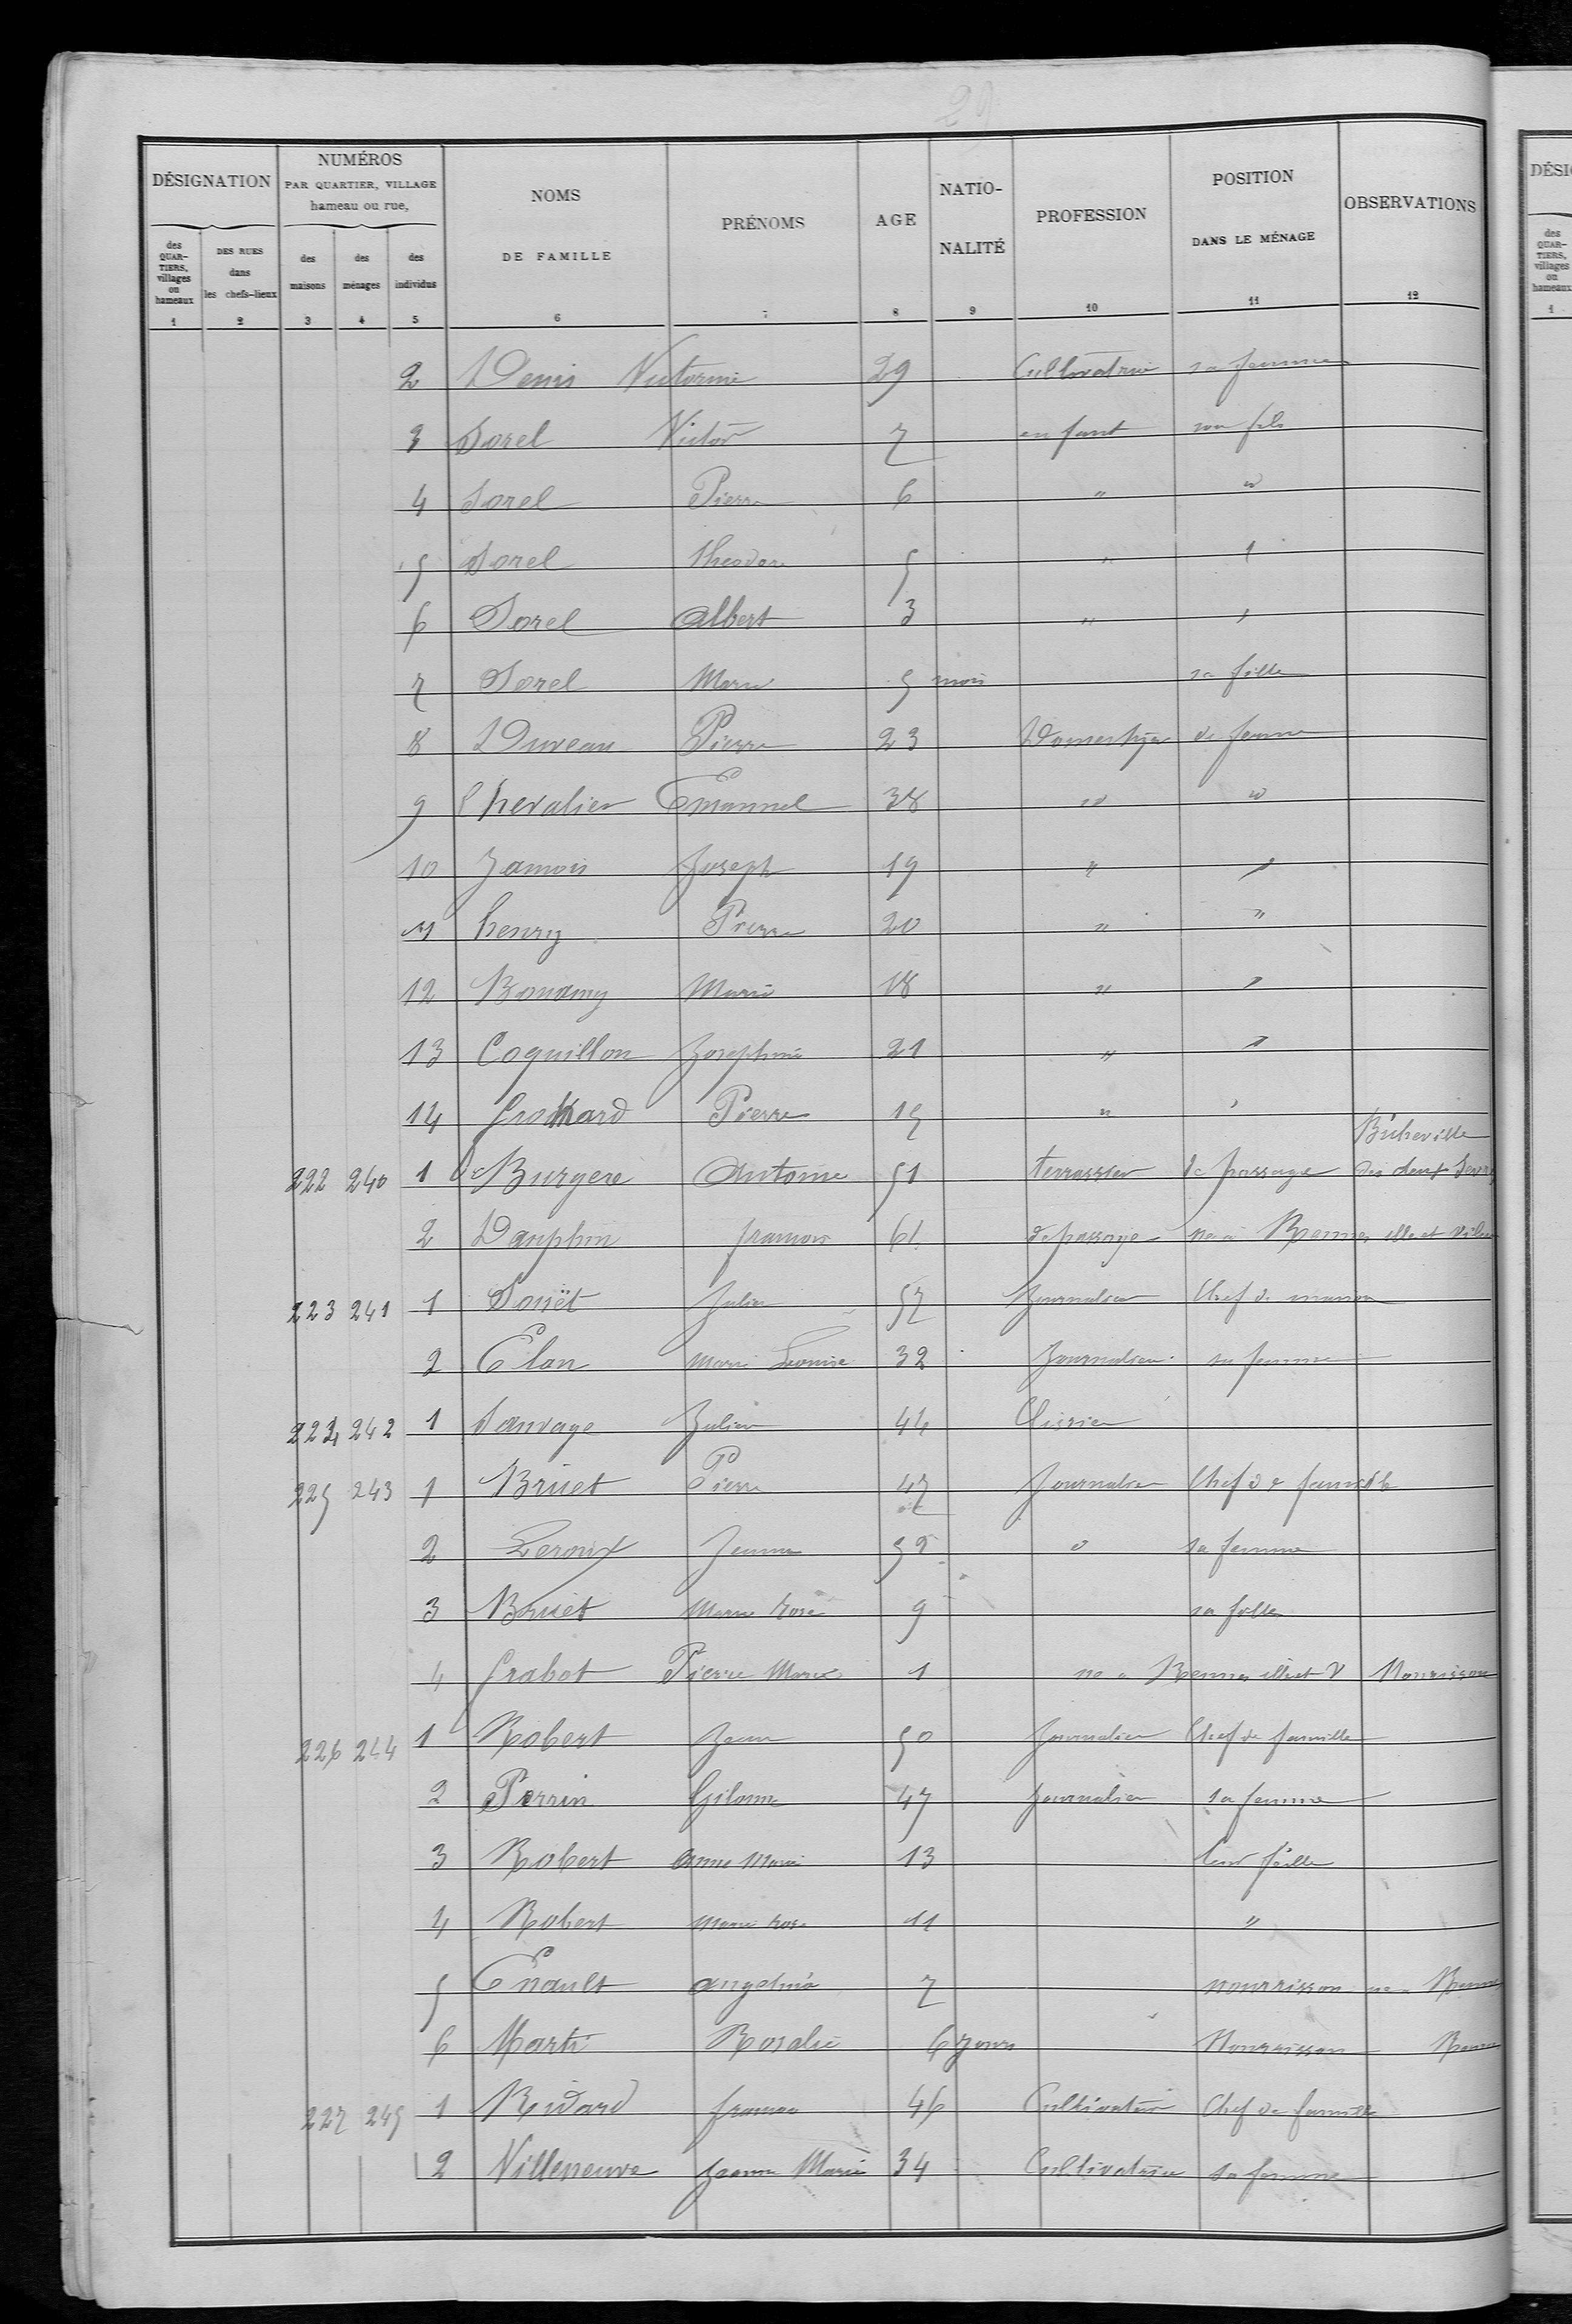 29
DÉSIGNATION NUMÉROS PAR QUARTIER, VILLAGE hameau ou rue, NOMS DE FAMILLE PRÉNOMS AGE NATIO-NALITÉ PROFESSION POSITION DANS LE MÉNAGE OBSERVATIONS
des QUARTIERS, villages ou hameaux DES RUES dans les chefs-lieux des maisons des ménages des individus
1 2 3 4 5 6 7 8 9 10 11 12
2 Denis Victorine 29 Cultivatrice sa femme
3 Sorel Victor 7 enfant son fils
4 Sorel Pierre 6 " "
5 Sorel Theodore 5 " "
6 Sorel Albert 3 " "
7 Sorel Marie 5 mois sa fille
8 Duveau Pierre 23 Domestique de ferme
9 Chevalier Emannuel 38 " "
10 Jamois Joseph 19 " "
11 henry Pierre 20 " "
12 Bonamy Marie 18 " "
13 Coquillon Josephine 21 " "
14 Pierre 15 " "
222 240 1 Burgere Antoine 51 terrassier de passage des deux
2 Dauphin francois 61 de passage né à Rennes ille et vilaine
223 241 1 Soriët Julien 57 Journalier Chef de maison
2 Elan Marie Leonise 32 Journalier sa femme
224 242 1 Sauvage Julien 44
225 243 1 Briiet Pierre 47 Journalier Chef de famille
2 Leroux Jeanne 52 " sa femme
3 Briiet Marie Rose 9 sa fille
4 Grabot Pierre Marie 1 né à Rennes ille et V Nourrisson
226 244 1 Robert Jean 50 Journalier Chef de famille
2 Perrin Gilonne 47 Journalier sa femme
3 Robert Anne Marie 13 leur fille
4 Robert Marie Rose 11 "
5 Enault Angelina 7 nourrisson né à Rennes
6 Marti Rosalie 6 jours Nourrisson Rennes
227 245 1 Ridard francois 46 Cultivateur Chef de famille
2 Villeneuve Jeanne Marie 34 Cultivatrice sa femme
DÉSI
des QUARTIERS, villages ou hameaux
1